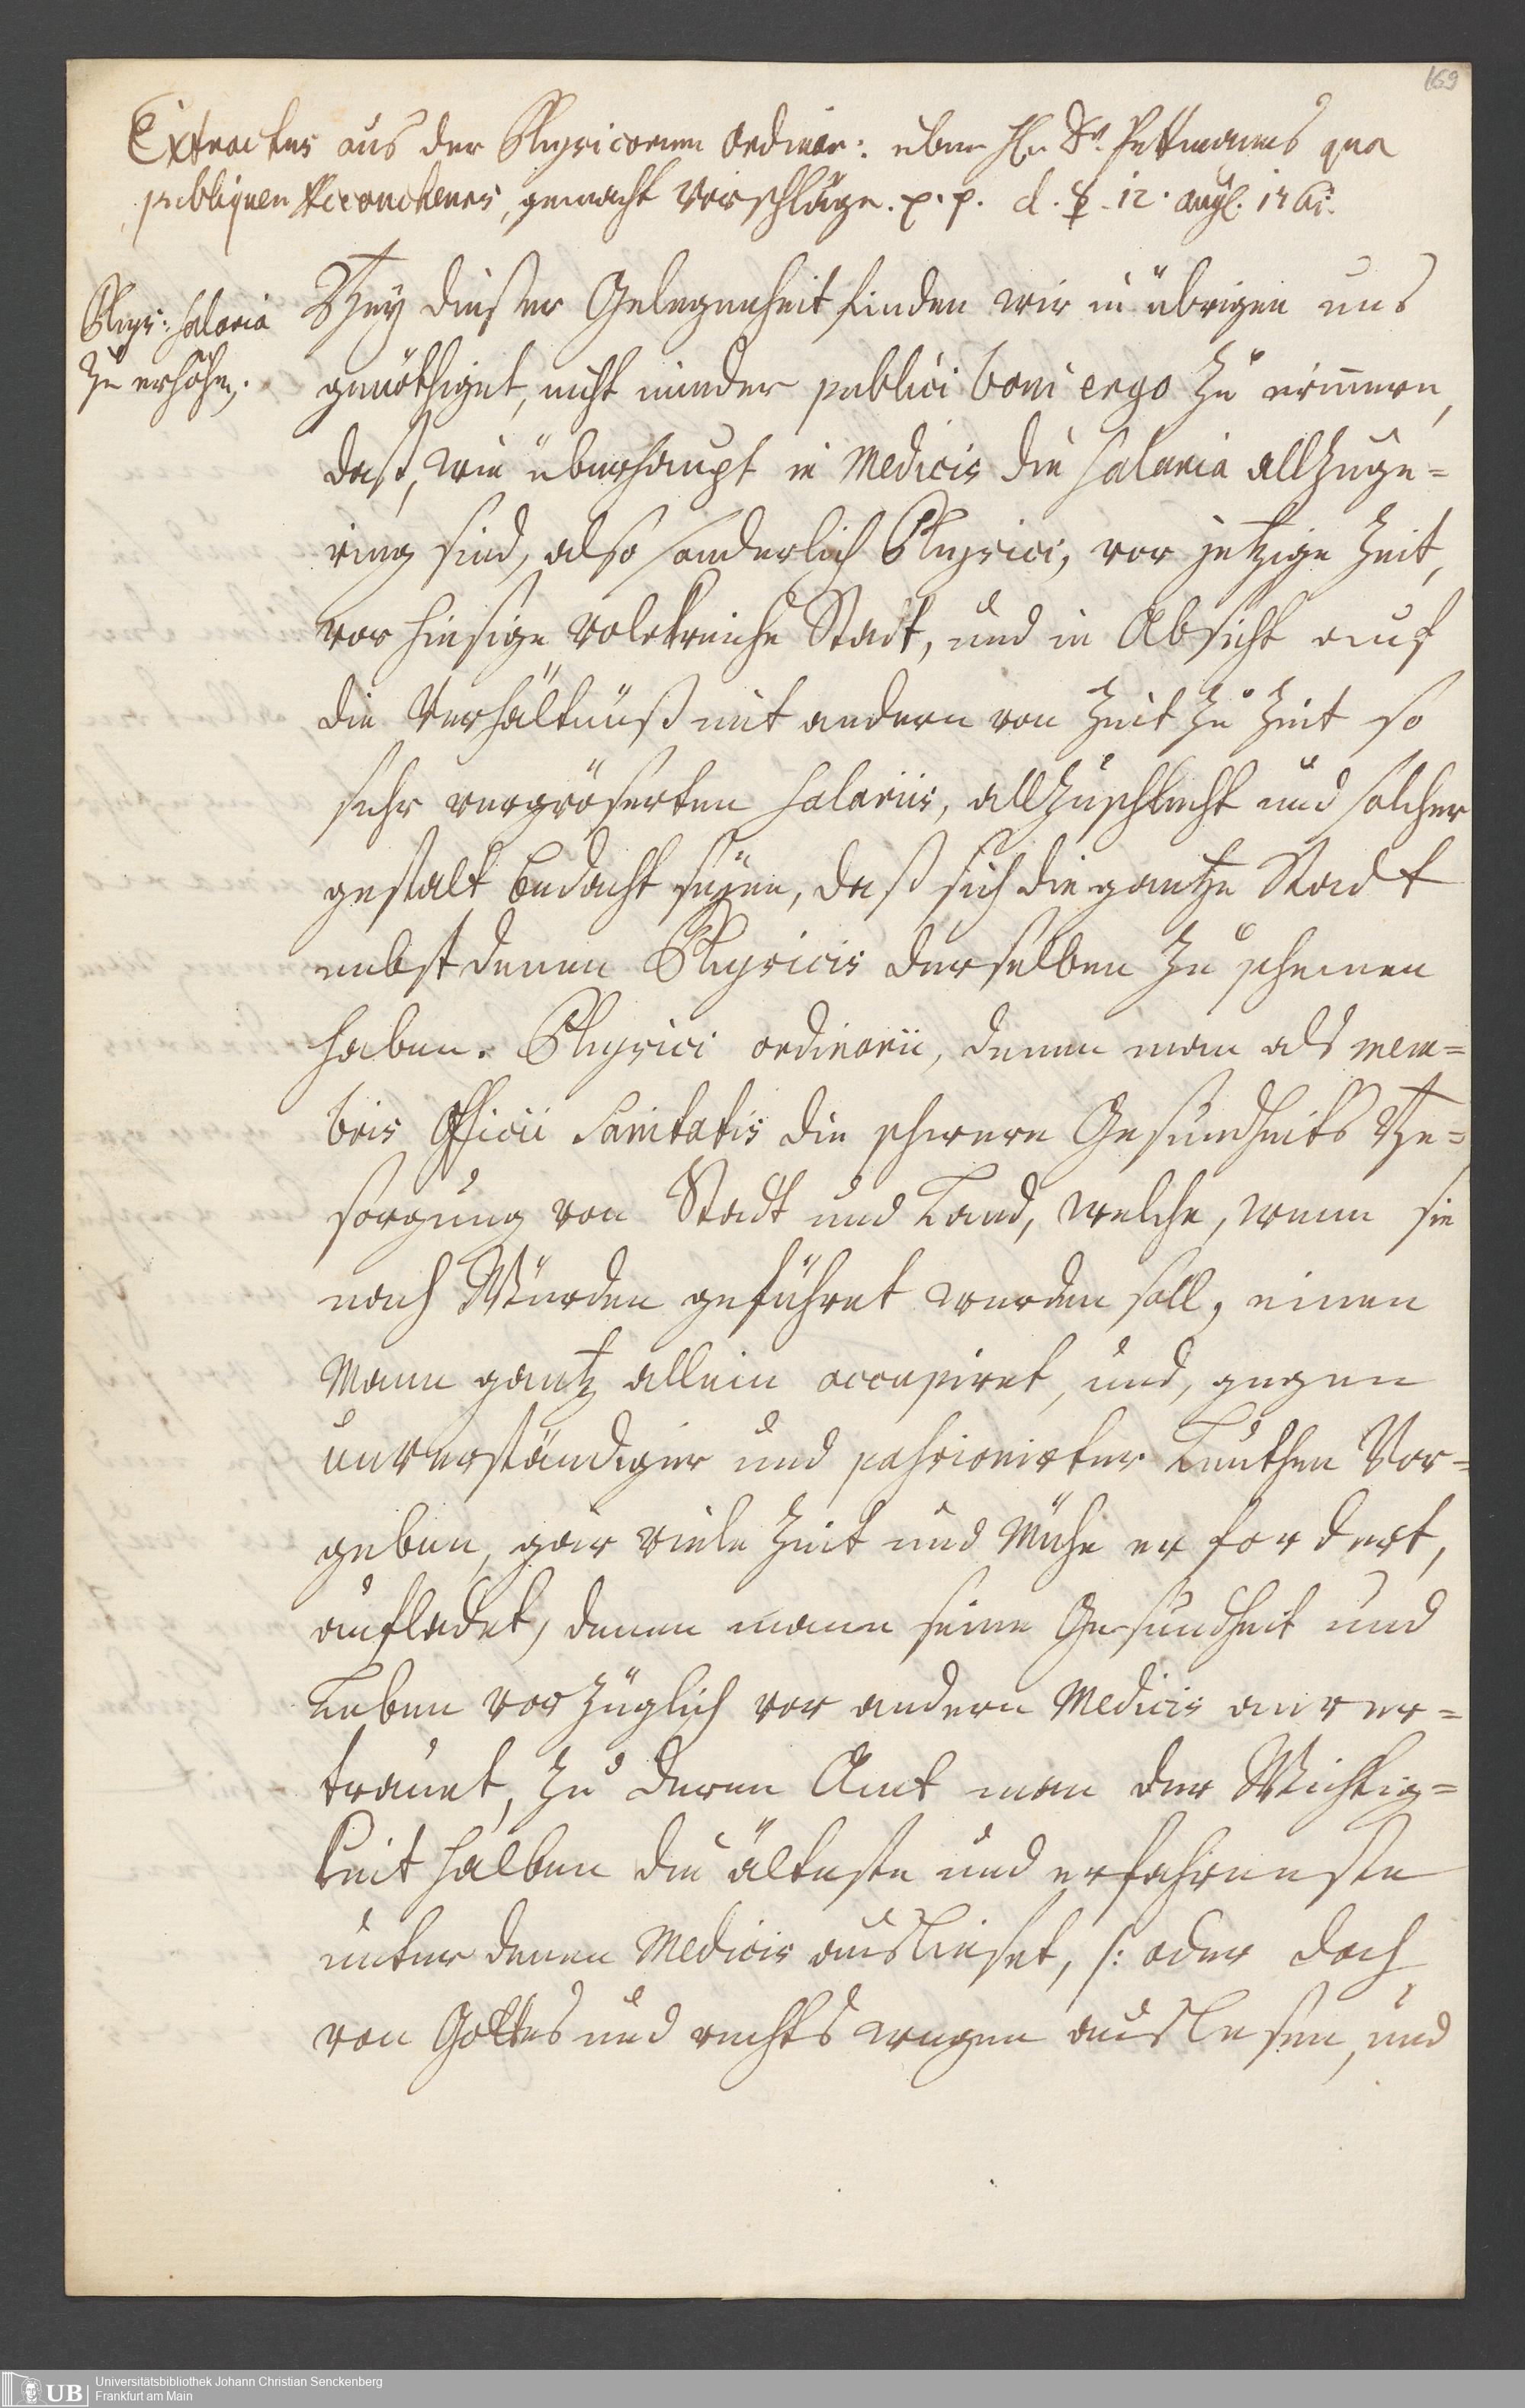 169
Extractus aus der Physicorum Ordinar: über H. Dr. Pettmanns qua
publiquen Accoucheurs, gemacht Vorschläge. p. p. d. ☿. 12. Aug. 1761.
Phys: Salaria
zu erhöhen.
Bey dießer Gelegenheit finden wir in übrigen uns
genöthiget, nicht minder publici boni ergo zu erinnern,
daß, wie überhaupt in Medicis die Salaria allzuge=
ring sind, also sonderlich Physici, vor jetzige Zeit,
vor hiesige volckreiche Stadt, und in Absicht auf
die Verhältnüß mit andern von Zeit zu Zeit so
sehr vergröserten Salariis, allzuschlecht und solcher
gestalt bedacht seyen, daß sich die gantze Stadt
nebst denen Physicis derselben zu schemen
haben. Physici ordinarii, denen man als mem=
bris Officii Sanitatis die schwere Gesundheits Be=
sorgung von Stadt und Land, welche, wenn sie
nach Würden geführet werden soll, einen
Mann gantz allein occupiret, und, gegen
unverständiger und passionirter Leuthen Vor=
geben, gar viele Zeit und Mühe erfordert,
aufladet, denen mann seine Gesundheit und
Leben vorzüglich vor andern Medicis anver=
trauet, zu deren Amt man der Wichtig=
keit halben die älteste und erfahrenste
unter denen Medicis ausließet, /: oder doch
von Gottes und rechts wegen auslesen, und
UB
Universitätsbibliothek Johann Christian Senckenberg
Frankfurt am Main